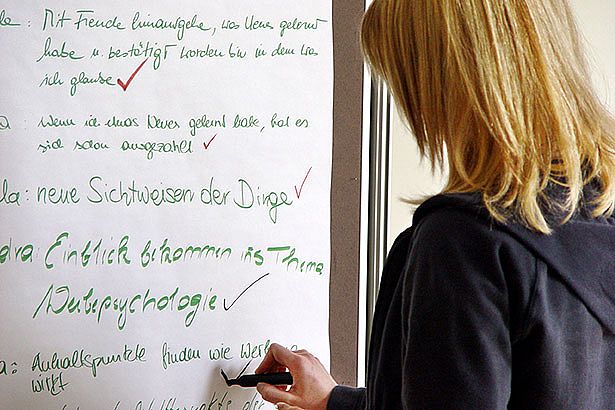 le: Mit Freude hinausgehe, was Neues gelernt
habe u. bestätigt worden bin in dem was
ich glaube
a: wenn ich etwas Neues gelernt habe, hat es
sich schon ausgezahlt
la: neue Sichtweisen der Dinge
dra: Einblick bekommen ins Thema
Werbepsychologie
a: Anhaltspunkte finden wie Werbung
wirkt